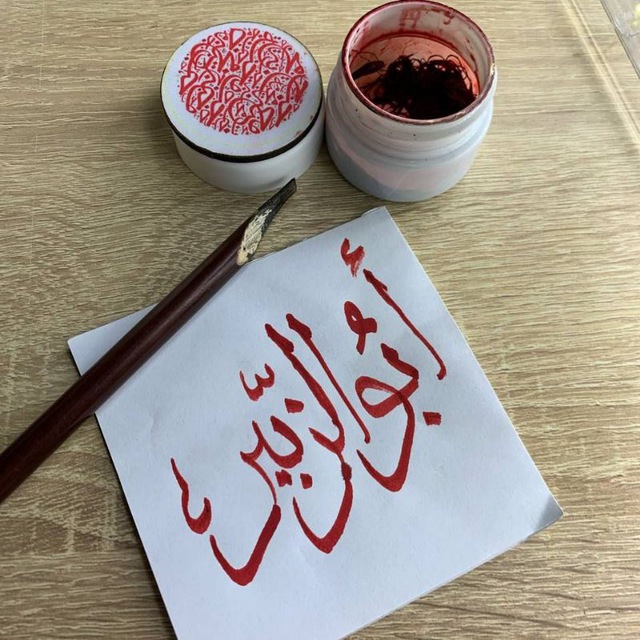 أبُو الزبير